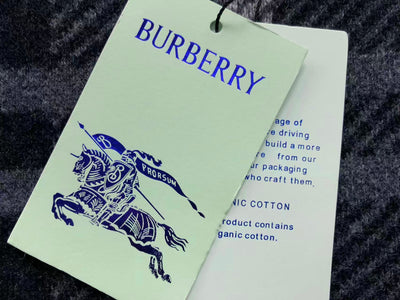 BURBERRY
PRORSUM
age of
driving
build a more
from our
packaging
who craft them,
COTTON
product contains
organic cotton.